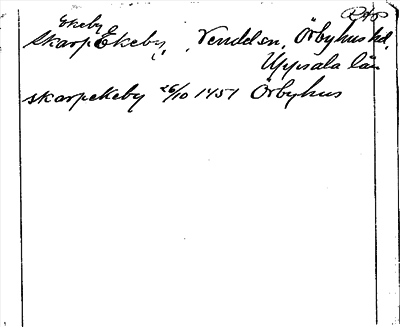 Ekeby
Skarp Ekeby, Vendel sn, Örbyhus hd,
Uppsala län
skarpekeby 26/10 1451 Örbyhus